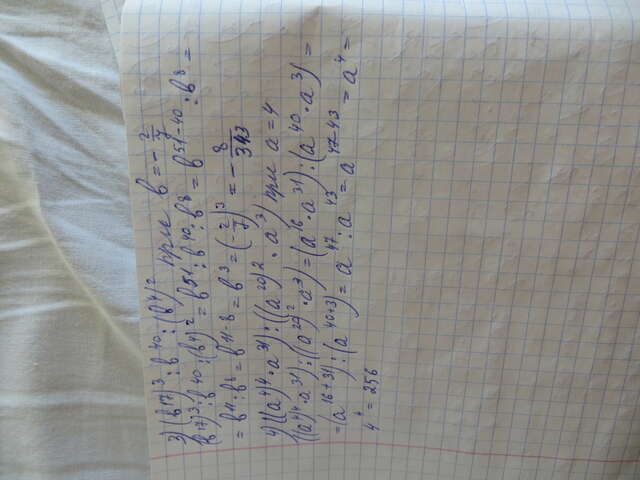 3) (b¹⁷)³ : b⁴⁰ : (b⁴)² при b = -2/7
(b¹⁷)³ : b⁴⁰ : (b⁴)² = b⁵¹ : b⁴⁰ : b⁸ = b⁵¹⁻⁴⁰ : b⁸ =
= b¹¹ : b⁸ = b¹¹⁻⁸ = b³ = (-2/7)³ = -8/343
4) ((a⁴)⁴ · a³¹) : ((a²⁰)² · a³) при a = 4
((a⁴)⁴ · a³¹) : ((a²⁰)² · a³) = (a¹⁶ · a³¹) : (a⁴⁰ · a³) =
= (a¹⁶⁺³¹) : (a⁴⁰⁺³) = a⁴⁷ : a⁴³ = a⁴⁷⁻⁴³ = a⁴ =
4⁴ = 256